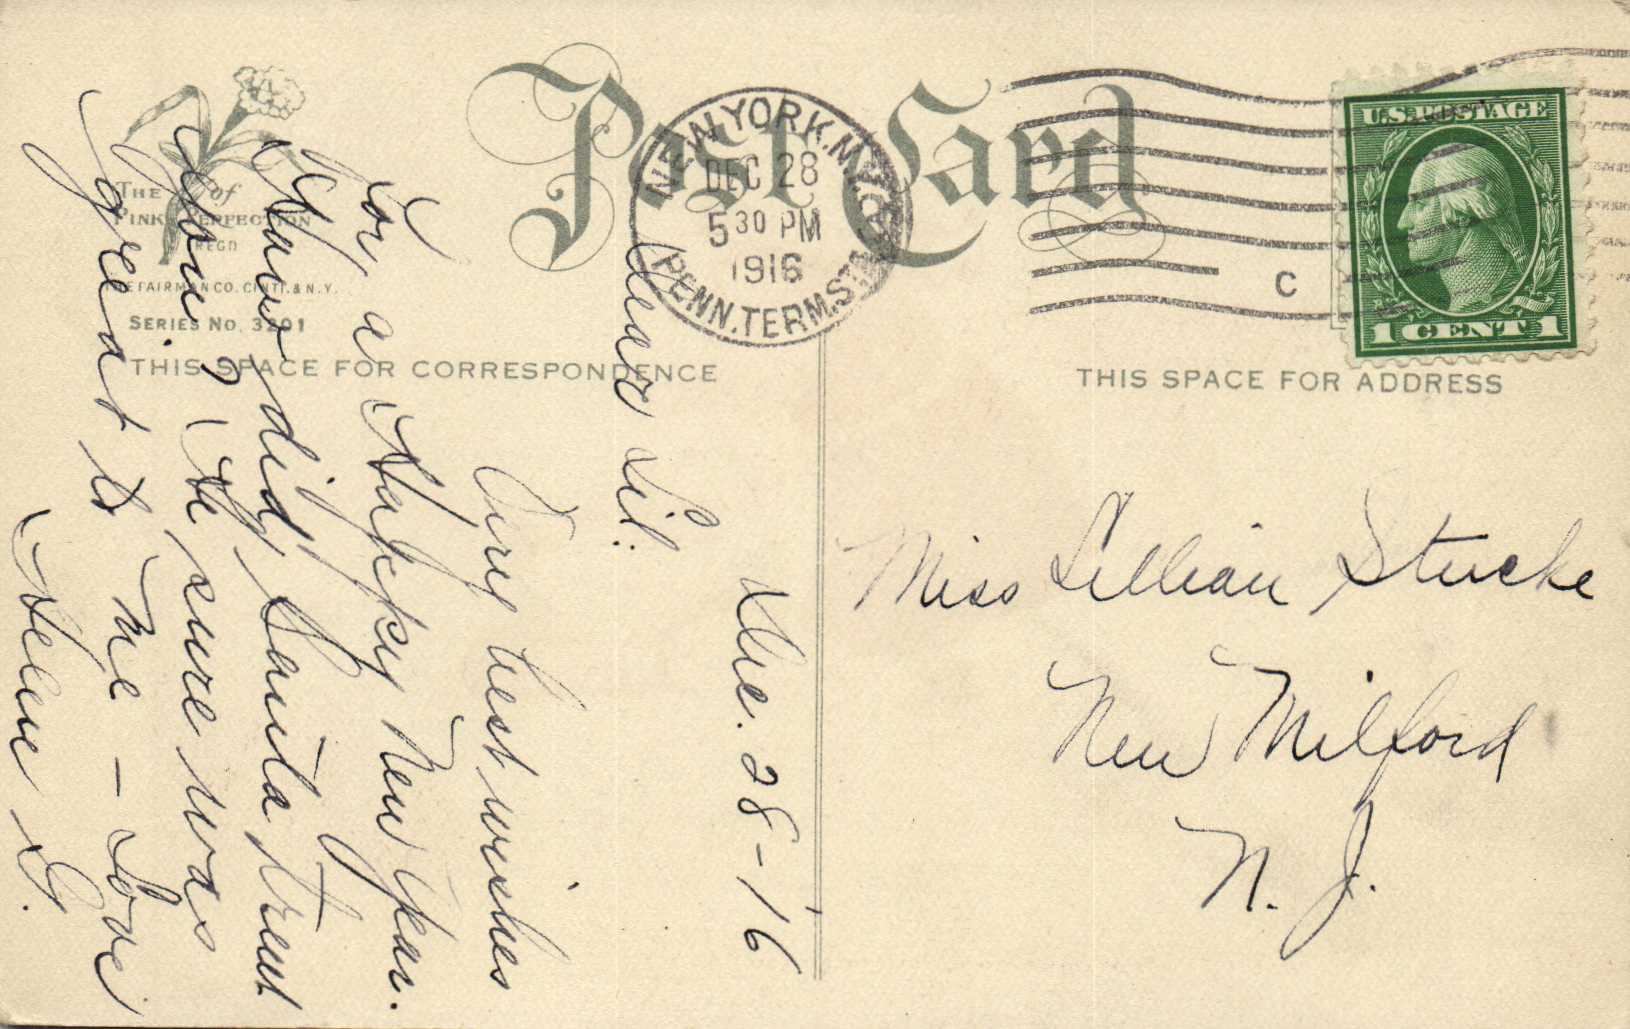 Post Card
NEW YORK, N.Y.
DEC 28
5 30 PM
1916
PENN. TERM. STA.
C
U.S. POSTAGE
1 CENT 1
THE
of
PINK PERFECTION
REG'D
FAIRMAN CO. CINTI. & N.Y.
SERIES No. 3201
THIS SPACE FOR CORRESPONDENCE
THIS SPACE FOR ADDRESS
Dec. 28-16
Dear Lil:
Very best wishes
for a Happy New Year.
How did Santa treat
you? He sure was
great to me - Love
Helen S.
Miss Lillian Stucke
New Milford
N. J.